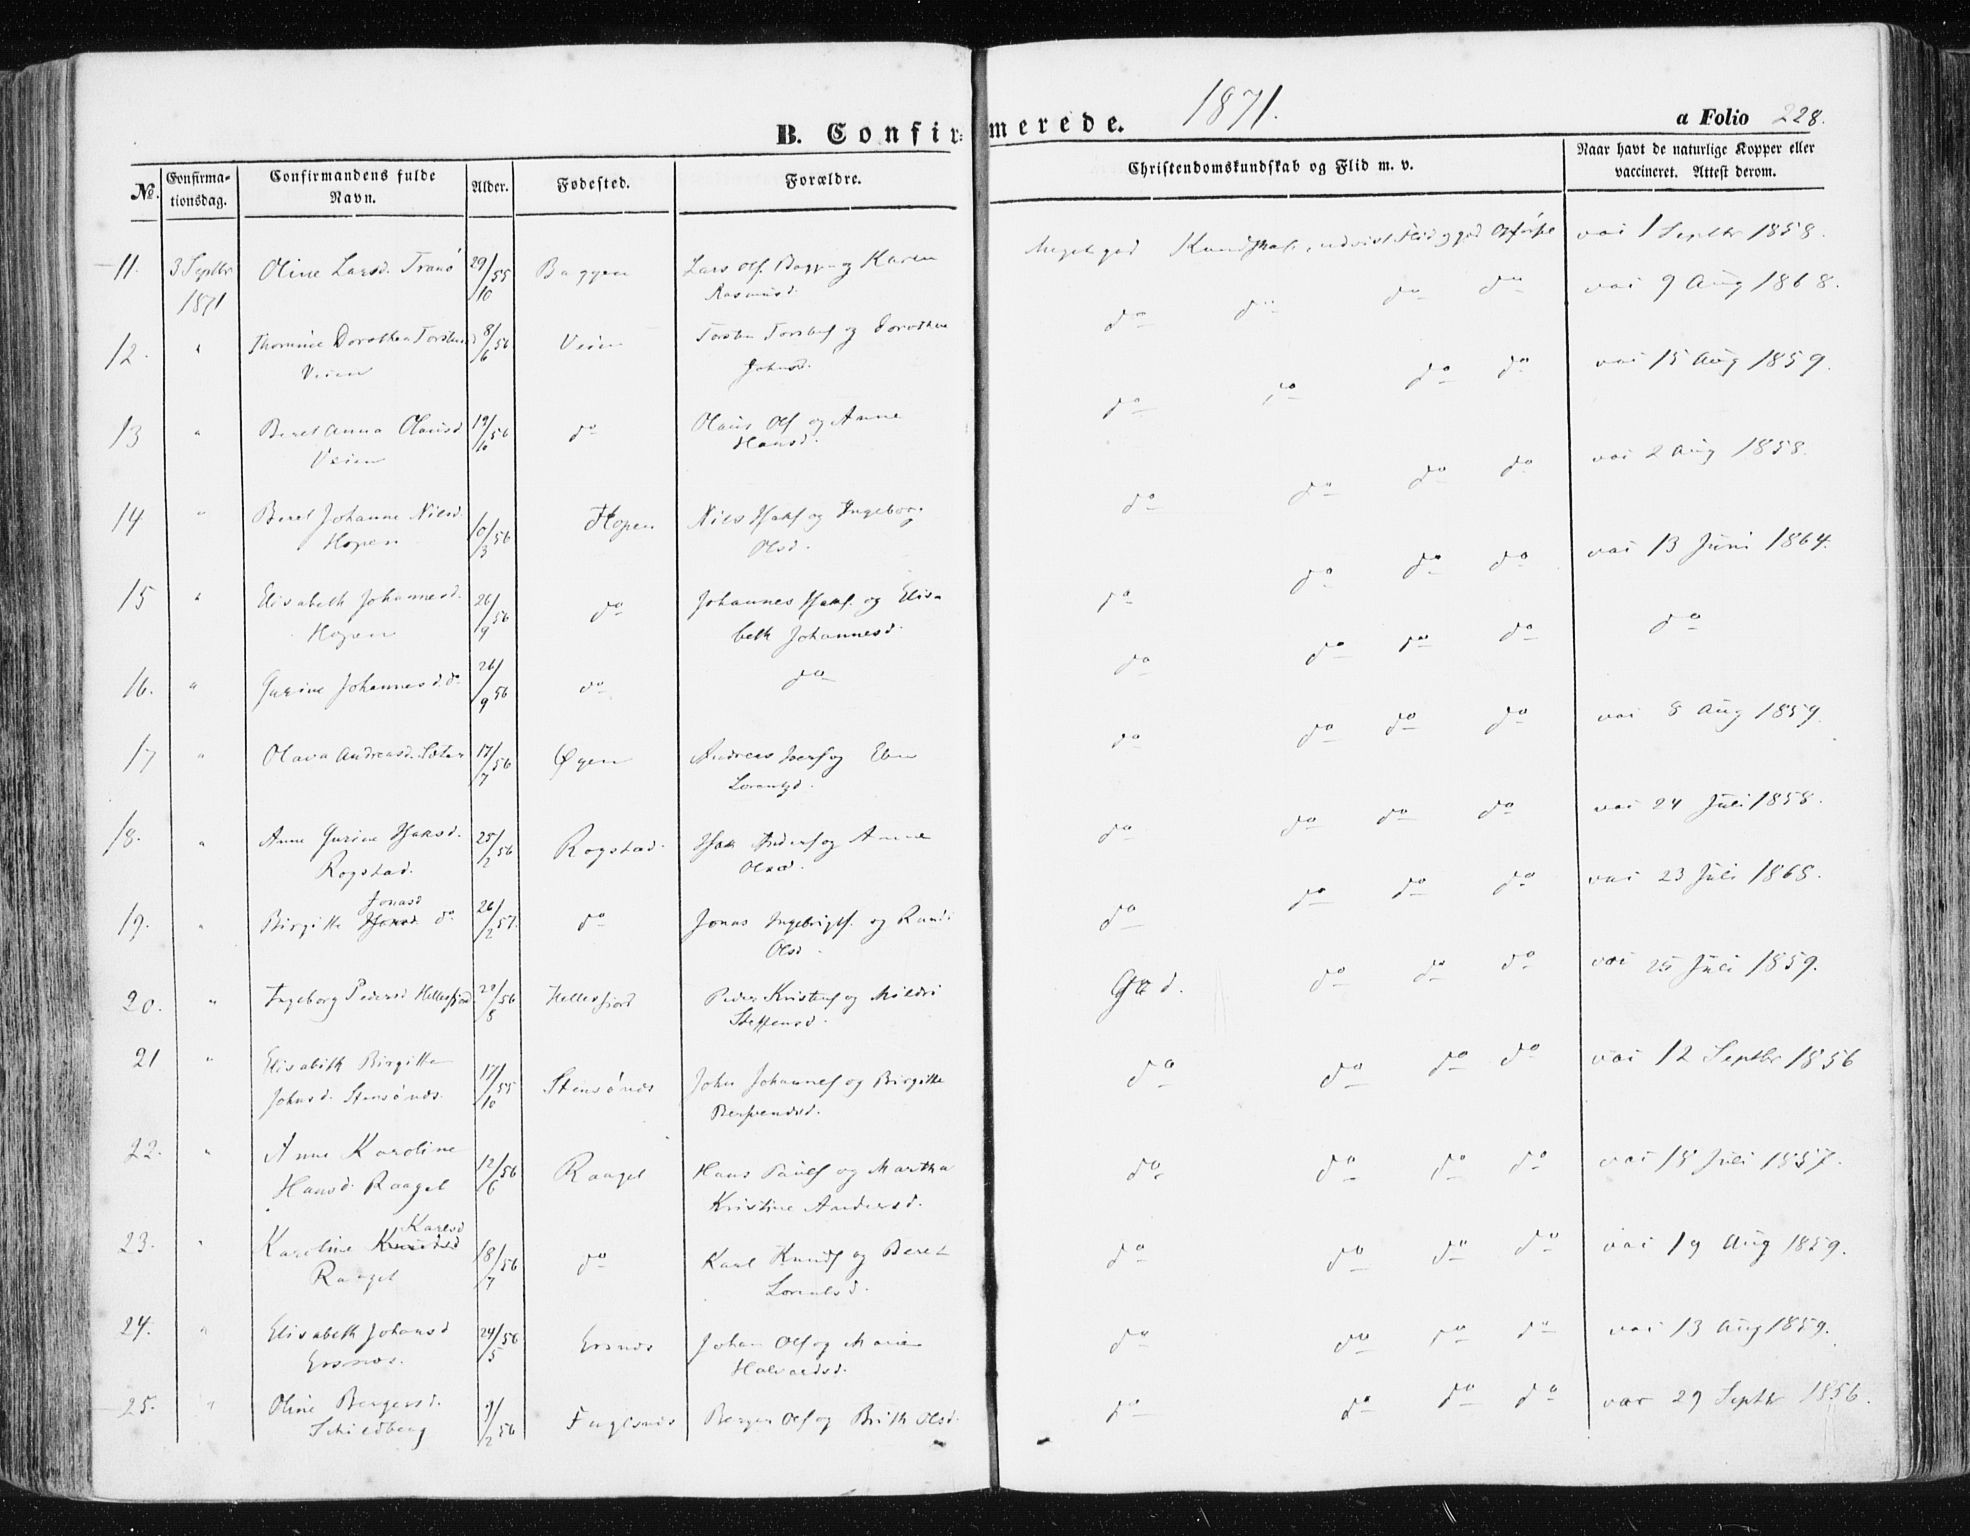 B. Confirmerede. 1871. a Folio 228.
No. Confirmationsdag. Confirmandens fulde Navn. Alder. Fødested. Forældre. Christendomskundskab og Flid m. v. Naar havt de naturlige Kopper eller vaccineret. Attest derom.
11. 3 Septbr 1871 Oline Larsd. Tranø 29/10 55 Baggen Lars Ols. og Karen Rasmusd. Meget god Kundskab, udvist Flid og god Opførsel vai 1 Septbr 1858.
12. " Dorothea Torstens Veien 8/6 56 Veien Torsten Torstens og Dorothea Johnsd. do do do do vai 9 Aug 1868.
13 " Beret Anna Olausd Veien 19/10 56 do Olaus Ols og Anne Hansd. do do do do vai 15 Aug 1859.
14 " Beret Johanne Nilsd. Hopen 10/3 56 Hopen Nils Isaks og Ingeborg Olsd. do do do do vai 2 Aug 1858.
15 " Elisabeth Johannesd. Hopen 26/9 56 do Johannes Isaks. og Elisabeth Johannesd. do do do do vai 13 Juni 1864.
16. " Gurine Johannesd. do 26/9 56 do do do do do do do
17 " Olava Andreasd. 17/7 56 Øyen Andreas og Elen Lorentsd. do do do do vai 8 Aug 1859
18. " Anne Gurine Isaksd. Rogstad. 25/2 56 Rogstad. Isak Anders og Anne Olsd. do do do do vai 24 Juli 1858.
19. " Birgitte Jonasd do 26/2 57. do Jonas Ingebrigts. og Randi Olsd. do do do do vai 23 Juli 1868.
20. " Ingeborg Pedersd Hellesfjord 22/8 56 Hellesfjord Peder Kristens og Mildri Steffensd. God. do do do vai 25 Juli 1859.
21 " Elisabeth Birgitte Johnsd. Stensønes. 17/10 55 Stensønes John Johannes og Birgitte do do do do vai 12 Septbr 1856
22. " Anne Karoline Hansd. Raaget 12/6 56 Raaget Hans Pauls og Martha Kristine Andersd. do do do do vai 15 Juli 1857.
23. " Karoline Karlsd Raaget 18/7 56 do Karl Knuds og Beret Lorentsd. do do do do vai 19 Aug 1859.
24. " Elisabeth Johansd Ersnes. 24/5 56 Ersnes Johan Ols og Marie Halvardsd. do do do do vai 13 Aug 1859.
25. " Oline Bergersd. Schildberg 9/2 56 Fuglsnes Berger Ols og Brith Olsd. do do do do vac 29 Septbr 1856.